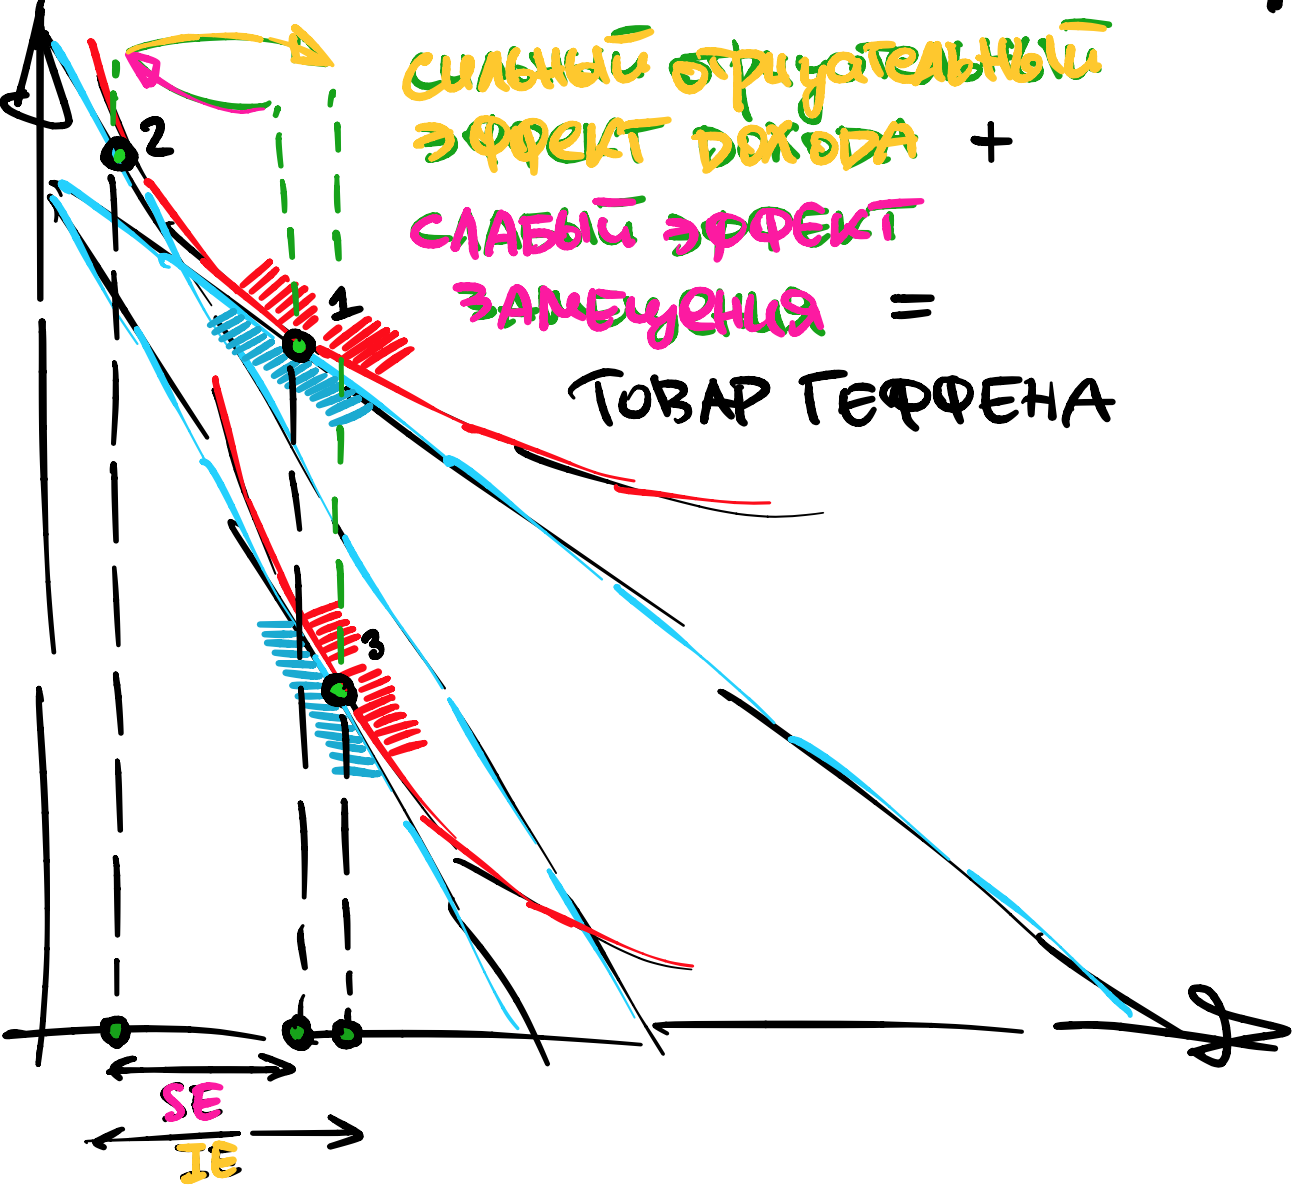 СИЛЬНЫЙ ОТРИЦАТЕЛЬНЫЙ
ЭФФЕКТ ДОХОДА +
СЛАБЫЙ ЭФФЕКТ
ЗАМЕЩЕНИЯ =
ТОВАР ГЕФФЕНА
2
1
3
SE
IE